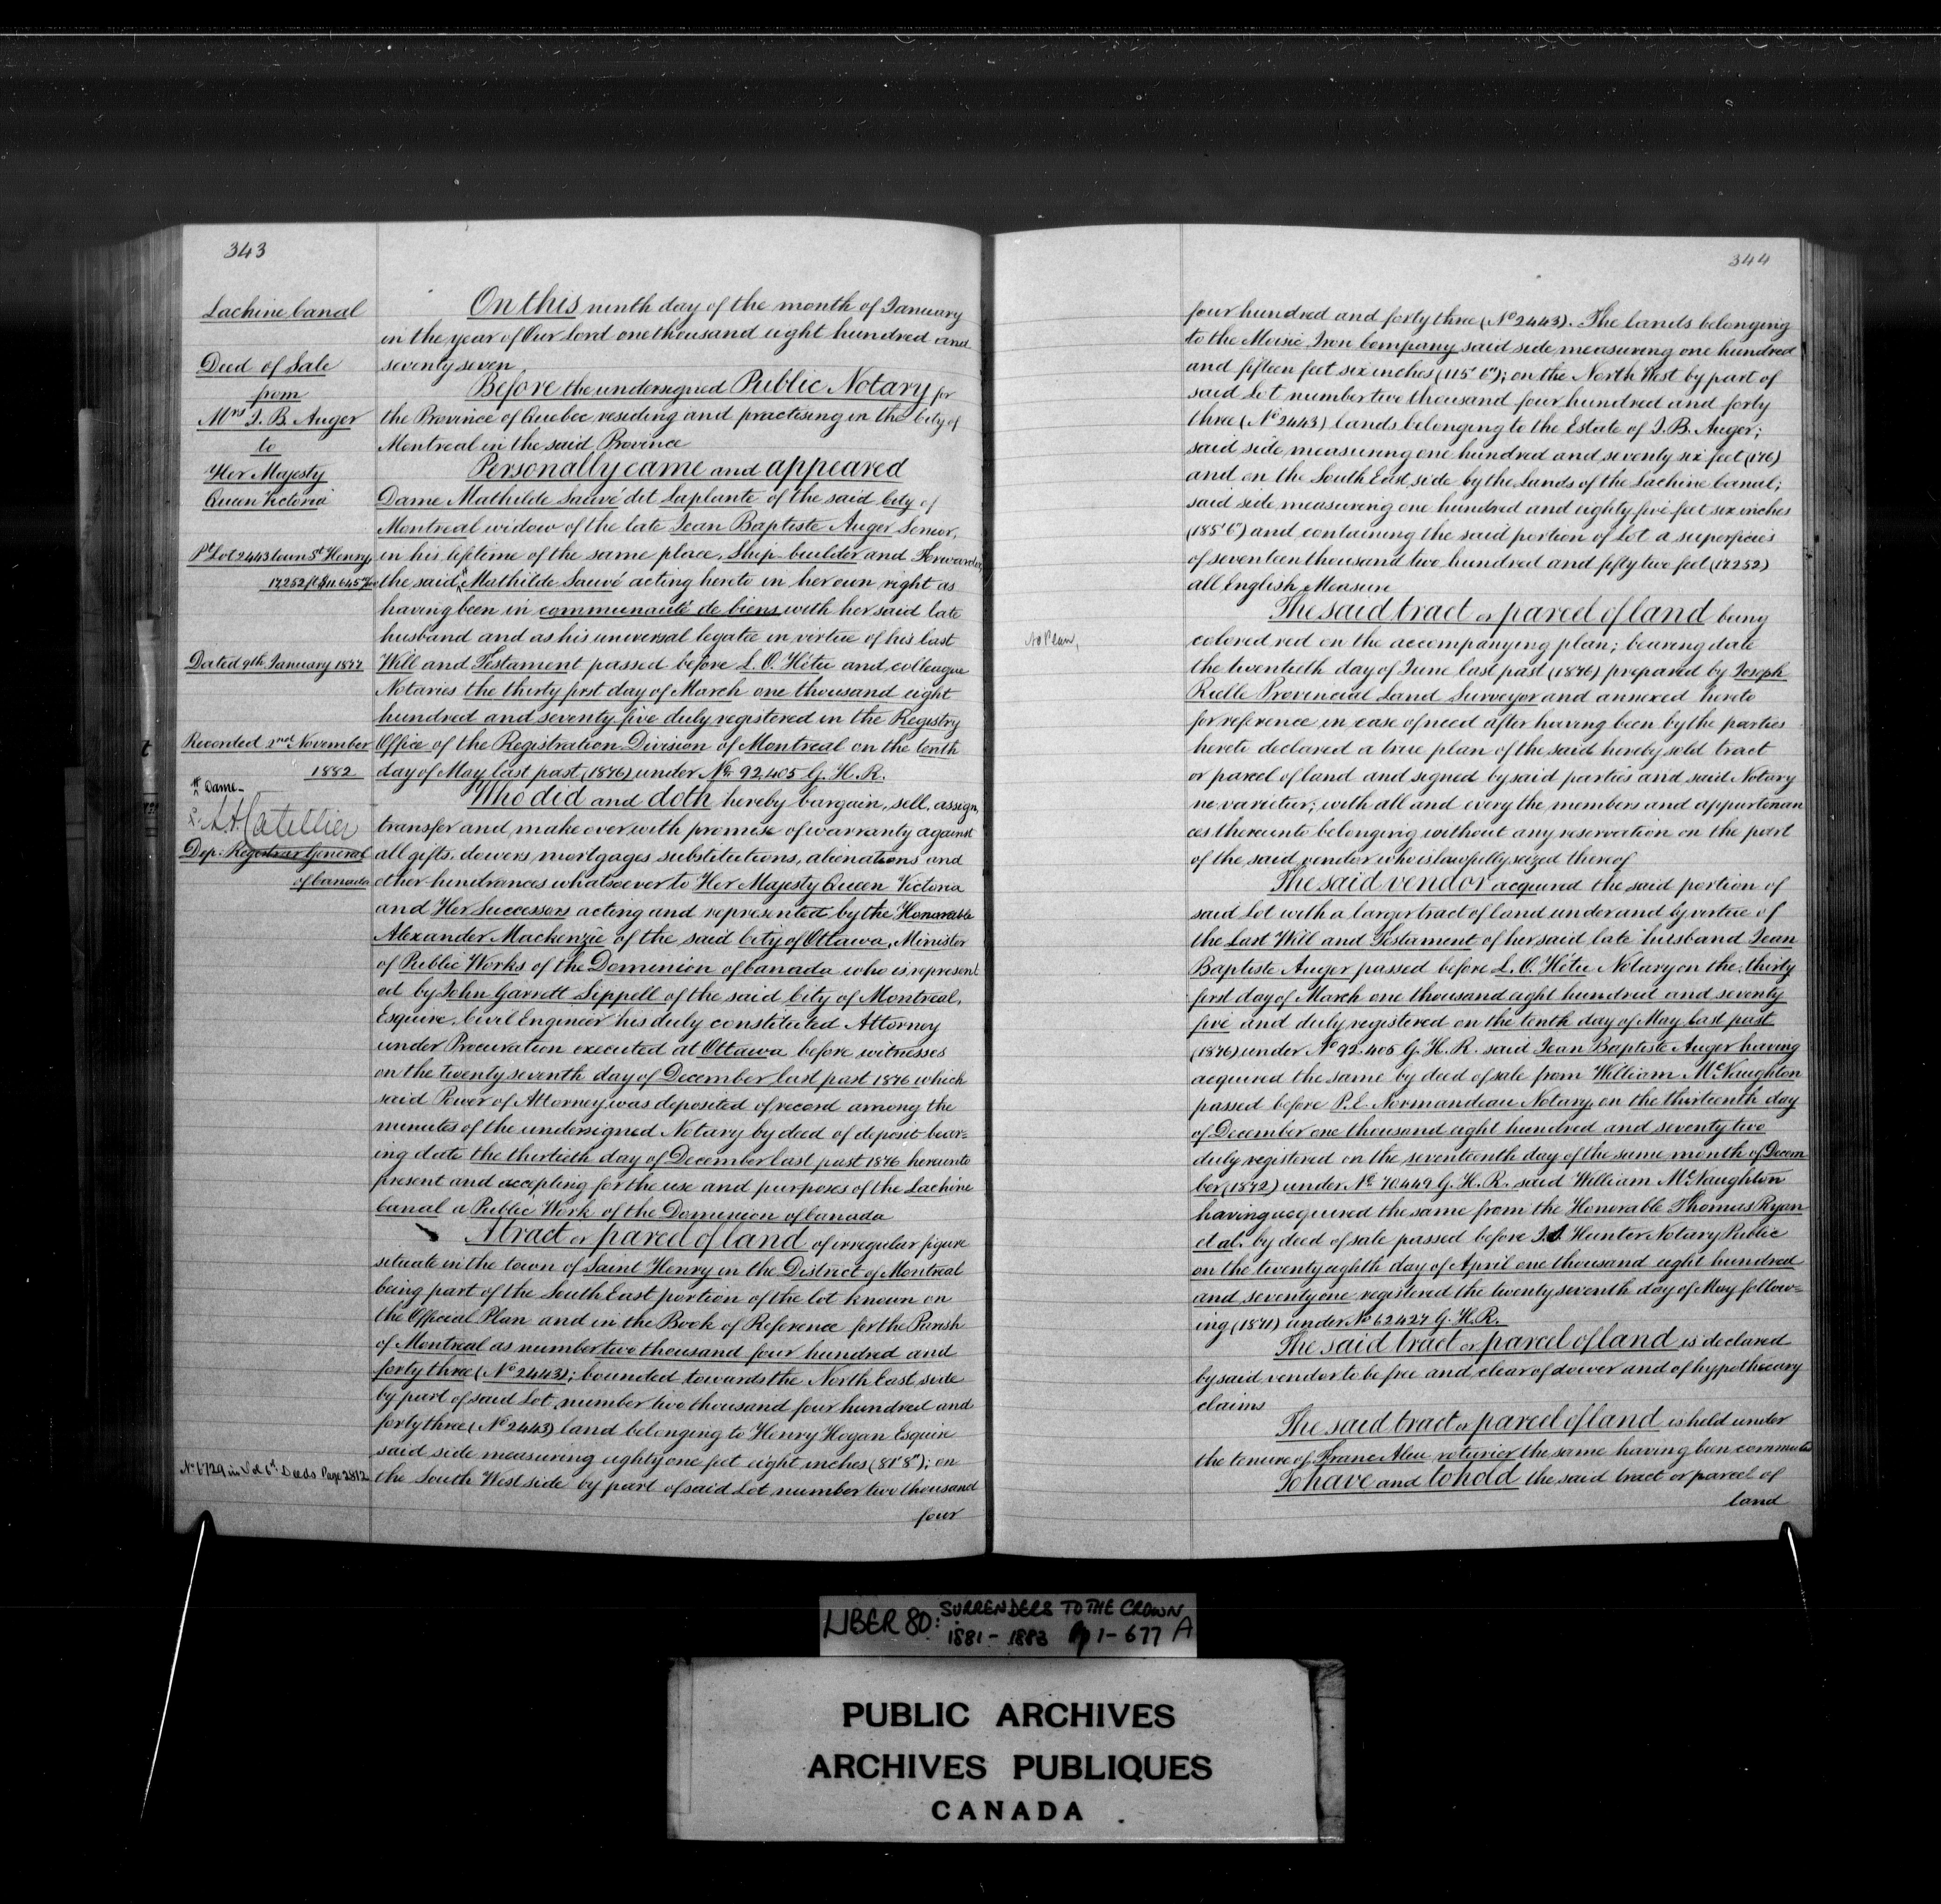 343
Lachine Canal
Deed of Sale
from
Mrs J. B. Auger
to
Her Majesty
Queen Victoria
Pt Lot 2443 town St Henry
17252 ft
Dated 9th January 1877
Recorded 2nd November
1882
Dame
L. A. Catellier
Dep: Registrar General
of Canada
No 1729 in Vol Deeds Page 2812
On this ninth day of the month of January
in the year of Our Lord one thousand eight hundred and
seventy seven
Before the undersigned Public Notary for
the Province of Quebec residing and practising in the City of
Montreal in the said Province
Personally came and appeared
Dame Mathilde Sauvé dit Laplante of the said City of
Montreal widow of the late Jean Baptiste Auger Senior,
in his lifetime of the same place, Ship-builder and Forwarder
the said Mathilde Sauvé acting hereto in her own right as
having been in communauté de biens with her said late
husband and as his universal legatee in virtue of his last
Will and Testament passed before L. O. Hétu and colleague
Notaries the thirty first day of March one thousand eight
hundred and seventy five duly registered in the Registry
Office of the Registration Division of Montreal on the tenth
day of May last past (1876) under No 92,405 G. H. R.
Who did and doth hereby bargain, sell, assign,
transfer and make over with promise of warranty against
all gifts, dowers, mortgages, substitutions, alienations and
other hindrances whatsoever to Her Majesty Queen Victoria
and Her Successors acting and represented by the Honorable
Alexander Mackenzie of the said City of Ottawa, Minister
of Public Works of the Dominion of Canada who is represent
ed by John Garrett Sippell of the said City of Montreal,
Esquire, Civil Engineer his duly constituted Attorney
under Procuration executed at Ottawa before witnesses
on the twenty seventh day of December last past 1876 which
said Power of Attorney was deposited of record among the
minutes of the undersigned Notary by deed of deposit bear=
ing date the thirtieth day of December last past 1876 hereunto
present and accepting for the use and purposes of the Lachine
Canal a Public Work of the Dominion of Canada
A tract or parcel of land of irregular figure
situate in the town of Saint Henry in the District of Montreal
being part of the South East portion of the lot known on
the Official Plan and in the Book of Reference for the Parish
of Montreal as number two thousand four hundred and
forty three (No 2443); bounded towards the North East side
by part of said Lot number two thousand four hundred and
forty three (No 2443) land belonging to Henry Hogan Esquire
said side measuring eighty one feet eight inches (81' 8"); on
the South West side by part of said Lot number two thousand
four
344
No Plan,
four hundred and forty three (No 2443). The lands belonging
to the Moisie Iron Company said side measuring one hundred
and fifteen feet six inches (115' 6"); on the North West by part of
said Lot number two thousand four hundred and forty
three (No 2443) lands belonging to the Estate of J. B. Auger;
said side measuring one hundred and seventy six feet (176)
and on the South East side by the Lands of the Lachine Canal;
said side measuring one hundred and eighty five feet six inches
(185' 6") and containing the said portion of Lot a superficies
of seventeen thousand two hundred and fifty two feet (17252)
all English Measure
The said tract or parcel of land being
colored red on the accompanying plan; bearing date
the twentieth day of June last past (1876) prepared by Joseph
Rielle Provincial Land Surveyor and annexed hereto
for reference in case of need after having been by the parties
hereto declared a true plan of the said hereby sold tract
or parcel of land and signed by said parties and said Notary
ne varietur; with all and every the members and appurtenan
ces thereunto belonging without any reservation on the part
of the said vendor who is lawfully seized thereof
The said vendor acquired the said portion of
said Lot with a larger tract of land under and by virtue of
the Last Will and Testament of her said late husband Jean
Baptiste Auger passed before L. O. Hétu Notary on the thirty
first day of March one thousand eight hundred and seventy
five and duly registered on the tenth day of May last past
(1876) under No 92.405 G. H. R. said Jean Baptiste Auger having
acquired the same by deed of sale from William McNaughton
passed before P. E. Normandeau Notary, on the thirteenth day
of December one thousand eight hundred and seventy two
duly registered on the seventeenth day of the same month of Decem
ber (1872) under No 70449 G. H. R. said William McNaughton
having acquired the same from the Honorable Thomas Ryan
et al. by deed of sale passed before J. S. Hunter Notary Public
on the twenty eighth day of April one thousand eight hundred
and seventy one registered the twenty seventh day of May follow=
ing (1871) under No 62427 G. H. R.
The said tract or parcel of land is declared
by said vendor to be free and clear of dower and of hypothecary
claims
The said tract or parcel of land is held under
the tenure of Franc Aleu roturier the same having been commuted
To have and to hold the said tract or parcel of
land
LIBER 80: SURRENDERS TO THE CROWN
1881 - 1883 pg 1-677 A
PUBLIC ARCHIVES
ARCHIVES PUBLIQUES
CANADA